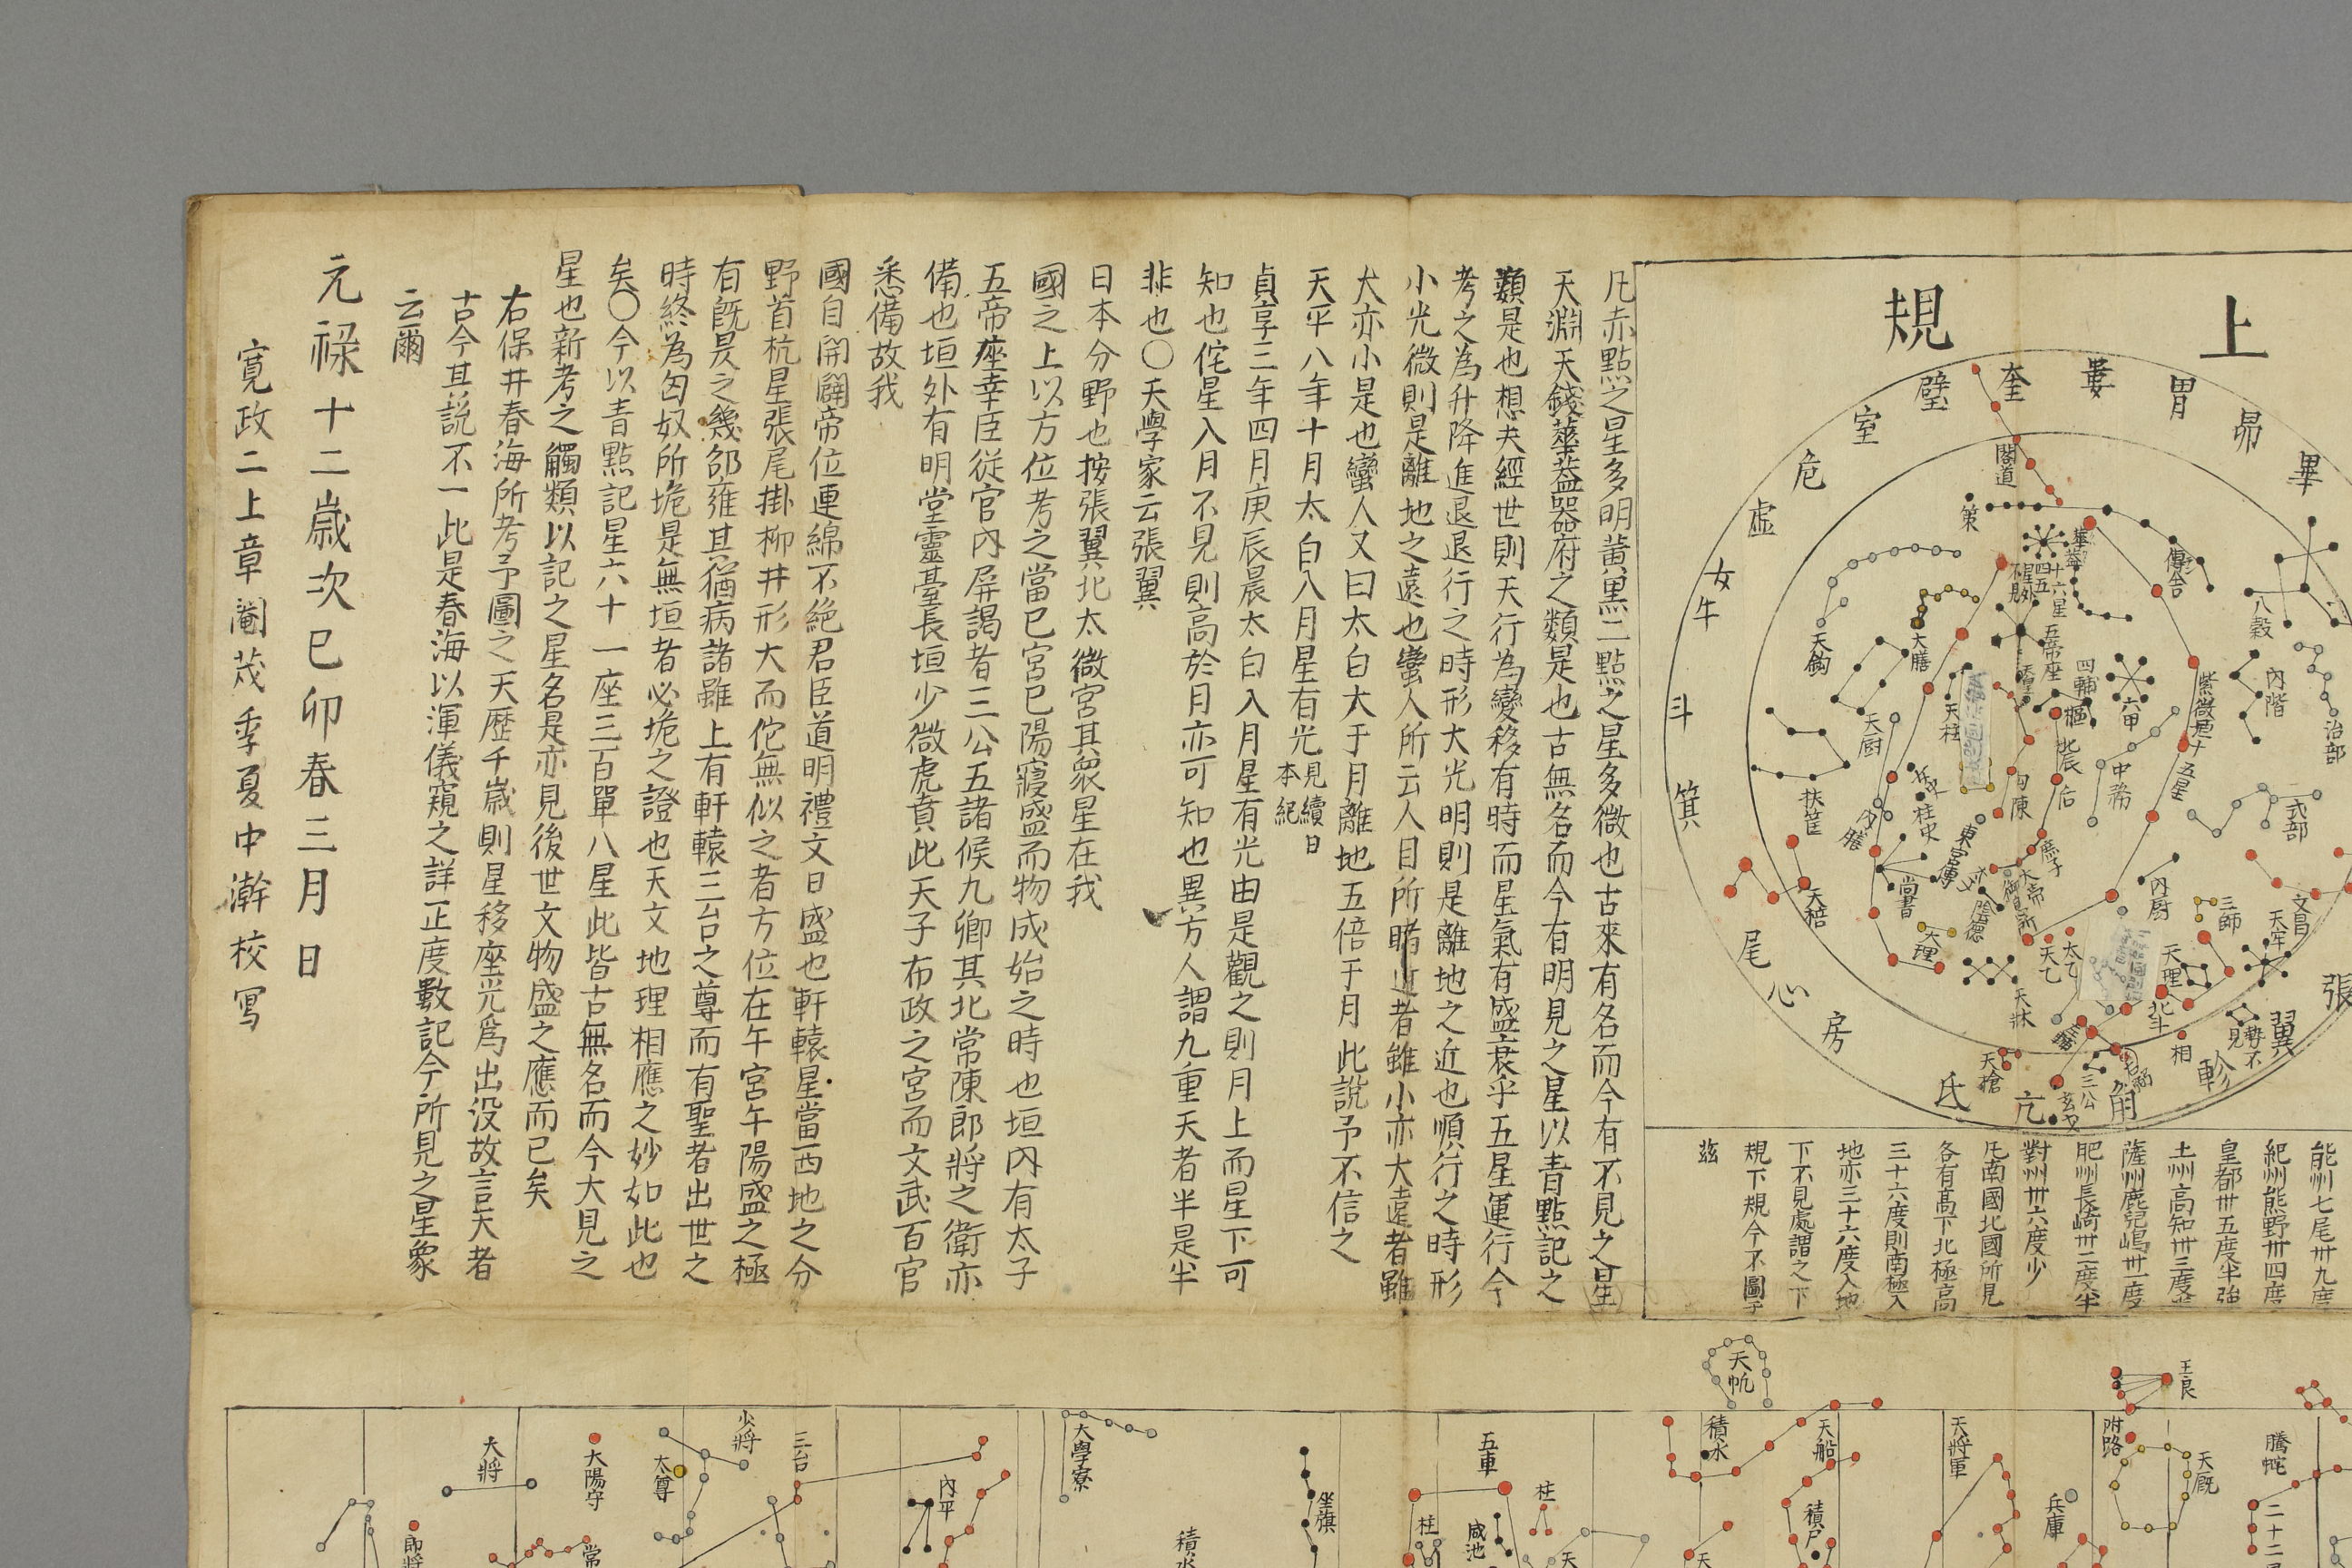 上規
奎
婁
胃
昴
畢
壁
室
危
虛
女
牛
斗
箕
尾
心
房
氐
亢
角
軫
翼
張
閣道
策
華蓋
傳舍
八穀
內階
治部
式部
天鈎
大膳
五帝座
四輔
六甲
天柱
天厨
扶筐
柱史
勾陳
后
庶子
紫微垣十五星
天棓
尚書
大理
陰德
內厨
三師
文昌
天牢
天理
天乙
太乙
天牀
北斗
天槍
三公
相
能州七尾卅九度
紀州熊野卅四度
皇都卅五度半強
土州高知卅三度
薩州鹿兒嶋卅一度
肥州長崎卅二度半
對州卅六度少
凡南國北國所見
各有髙下北極高
三十六度則南極入
地亦三十六度入地
下不見處謂之下
規下規今不圖于
茲
凡赤點之星多明黄黒二點之星多微也古來有名而今有不見之星
天淵天錢華蓋器府之類是也古無名而今有明見之星以青點記之
類是也想夫經世則天行為變移有時而星氣有盛衰乎五星運行今
考之為升降進退退行之時形大光明則是離地之近也順行之時形
小光微則是離地之遠也蠻人所云人目所睹近者雖小亦大遠者雖
大亦小是也蠻人又曰太白大于月離地五倍于月此說予不信之
天平八年十月太白入月星有光見續日本紀
貞享三年四月庚辰晨太白入月星有光由是觀之則月上而星下可
知也侘星入月不見則高於月亦可知也異方人謂九重天者半是半
非也〇天學家云張翼
日本分野也按張翼北太微宮其衆星在我
國之上以方位考之當巳宮巳陽寢盛而物成始之時也垣内有太子
五帝座幸臣従官内屏謁者三公五諸候九卿其北常陳郎將之衛亦
備也垣外有明堂靈臺長垣少微虎賁此天子布政之宮而文武百官
悉備故我
國自開闢帝位連綿不絶君臣道明禮文日盛也軒轅星當西地之分
野首杭星張尾掛柳井形大而佗無似之者方位在午宮午陽盛之極
有既昃之幾邵雍其猶病諸雖上有軒轅三台之尊而有聖者出世之
時終為匈奴所垝是無垣者必垝之證也天文地理相應之妙如此也
矣〇今以青點記星六十一座三百單八星此皆古無名而今大見之
星也新考之觸類以記之星名是亦見後世文物盛之應而已矣
右保井春海所考予圖之天歷千歲則星移座光爲出沒故言天者
古今其説不一此是春海以渾儀窺之詳正度數記今所見之星象
云爾
元禄十二歲次己卯春三月日
寛政二上章閹茂季夏中澣校写
天帆
王良
大將
大陽守
太尊
少將
三台
郎將
常
內平
大學寮
積水
坐旗
五車
柱
柱
咸池
天
積水
天船
積尸
天
天將軍
附路
天厩
兵庫
騰蛇
二十二